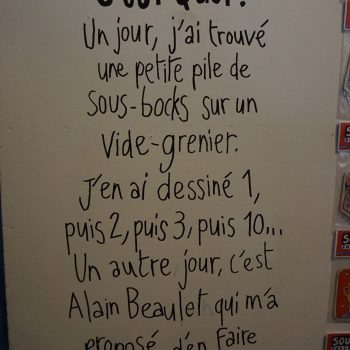 C'est quoi?
Un jour, j'ai trouvé
une petite pile de
sous-bocks sur un
vide-grenier.
J'en ai dessiné 1,
puis 2, puis 3, puis 10...
Un autre jour, c'est
Alain Beaulet qui m'a
proposé d'en faire
SOU